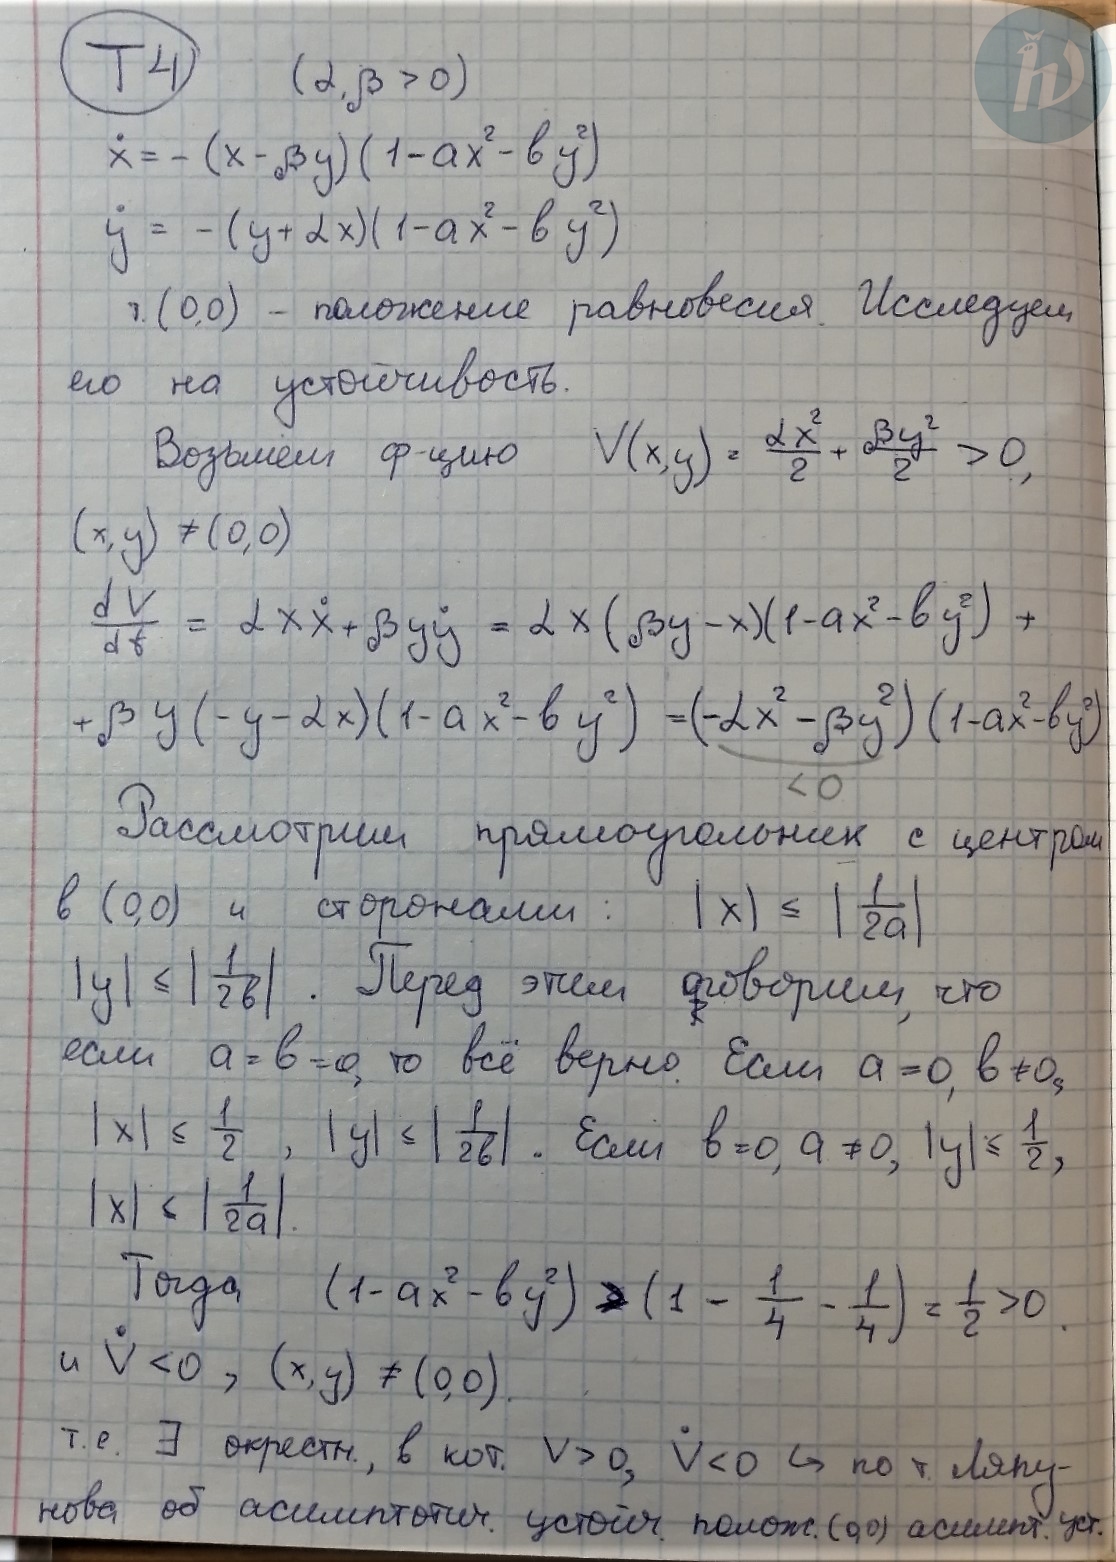 T4 (α, β > 0)
ẋ = - (x - βy)(1 - ax² - by²)
ẏ = - (y + αx)(1 - ax² - by²)
т. (0,0) - положение равновесия. Исследуем
его на устойчивость.
Возьмём ф-цию V(x,y) = αx²/2 + βy²/2 > 0,
(x,y) ≠ (0,0)
dV/dt = αxẋ + βyẏ = αx(βy - x)(1 - ax² - by²) +
+ βy(-y - αx)(1 - ax² - by²) = (-αx² - βy²)(1 - ax² - by²)
< 0
Рассмотрим прямоугольник с центром
в (0,0) и сторонами: |x| ≤ |1/2a|
|y| ≤ |1/2b|. Перед этим оговорим, что
если a = b = 0, то всё верно. Если a = 0, b ≠ 0,
|x| ≤ 1/2, |y| ≤ |1/2b|. Если b = 0, a ≠ 0, |y| ≤ 1/2,
|x| ≤ |1/2a|.
Тогда (1 - ax² - by²) ≥ (1 - 1/4 - 1/4) = 1/2 > 0.
и V̇ < 0, (x,y) ≠ (0,0).
т.е. ∃ окрестн., в кот. V > 0, V̇ < 0 ↪ по т. Ляпу-
нова об асимптотич. устойч. полож. (0,0) асимпт. уст.